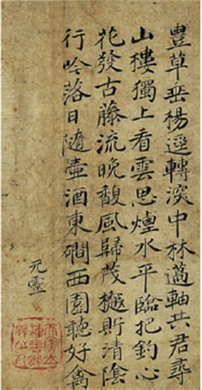 豊草垂楊逕轉溪中林邁軸共君尋
山樓獨上看雲思煙水平臨把釣心
花發古藤流晚馥風歸茂樾貯清陰
行吟落日隨壺酒東磵西園聽好禽
元靈